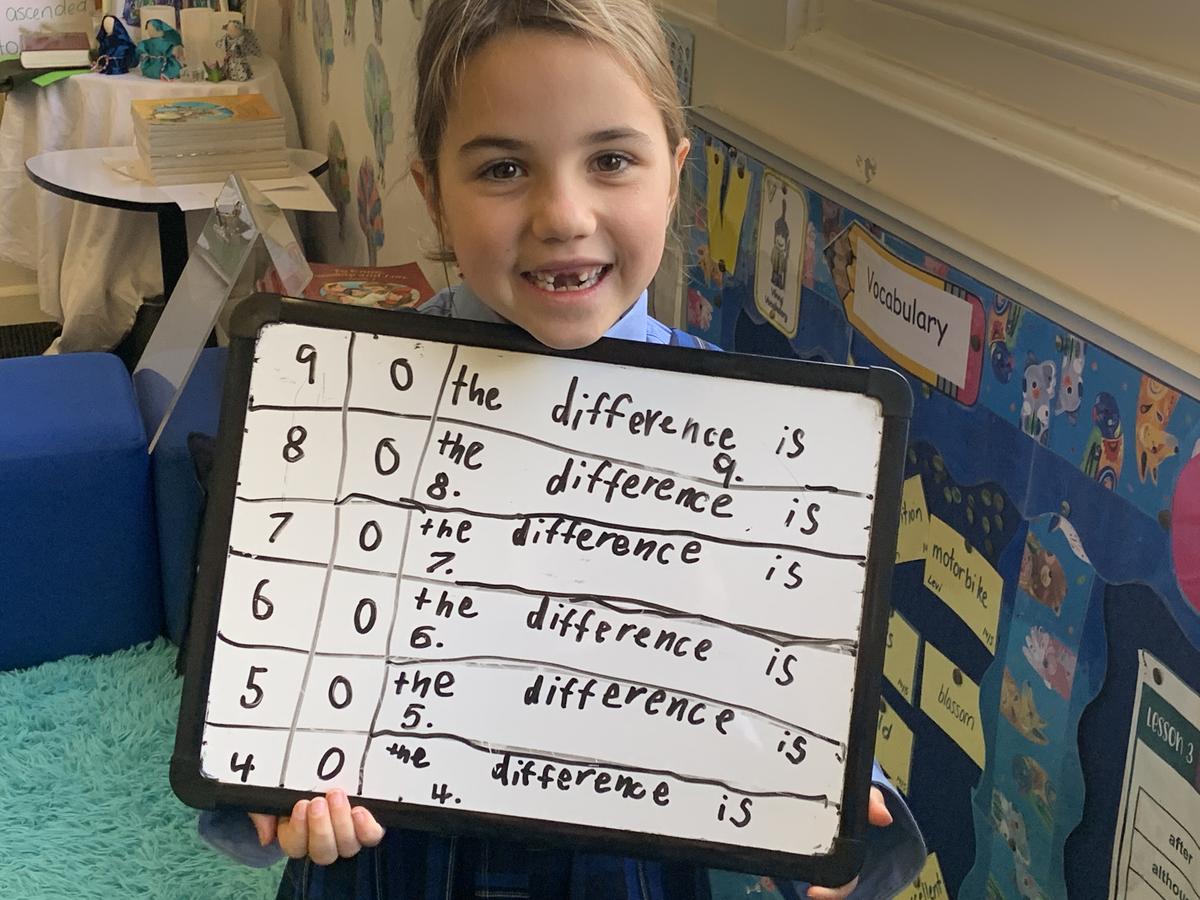 ascended
9 0 the difference is
9.
8 0 the difference is
8.
7 0 the difference is
7.
6 0 the difference is
6.
5 0 the difference is
5.
4 0 the difference is
4.
Vocabulary
motorbike
Levi
blossom
Lesson 3
after